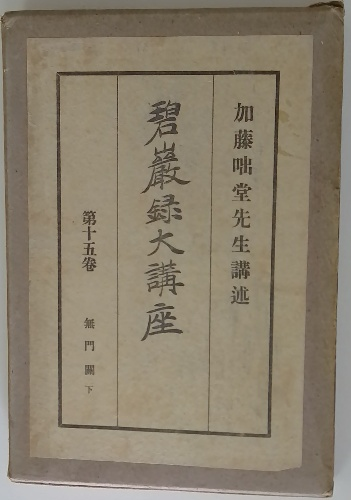 加藤咄堂先生講述
碧巖録大講座
第十五卷
無門關 下